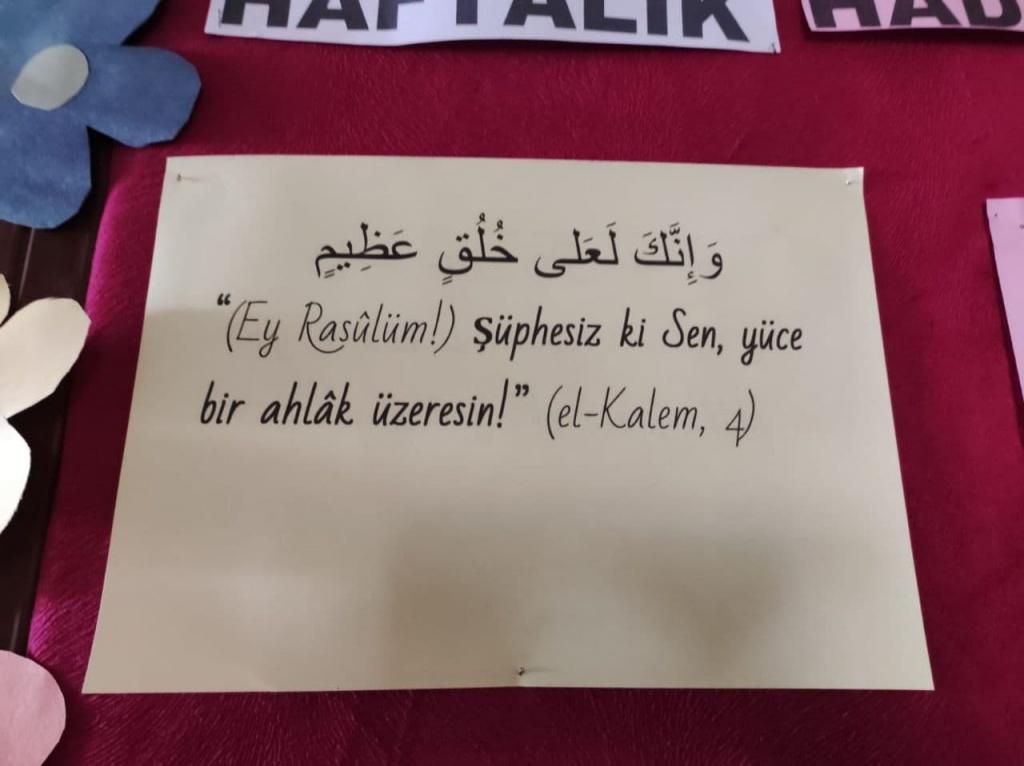 HAFTALIK
وَإِنَّكَ لَعَلى خُلُقٍ عَظِيمٍ
“(Ey Rasûlüm!) Şüphesiz ki Sen, yüce
bir ahlâk üzeresin!” (el-Kalem, 4)